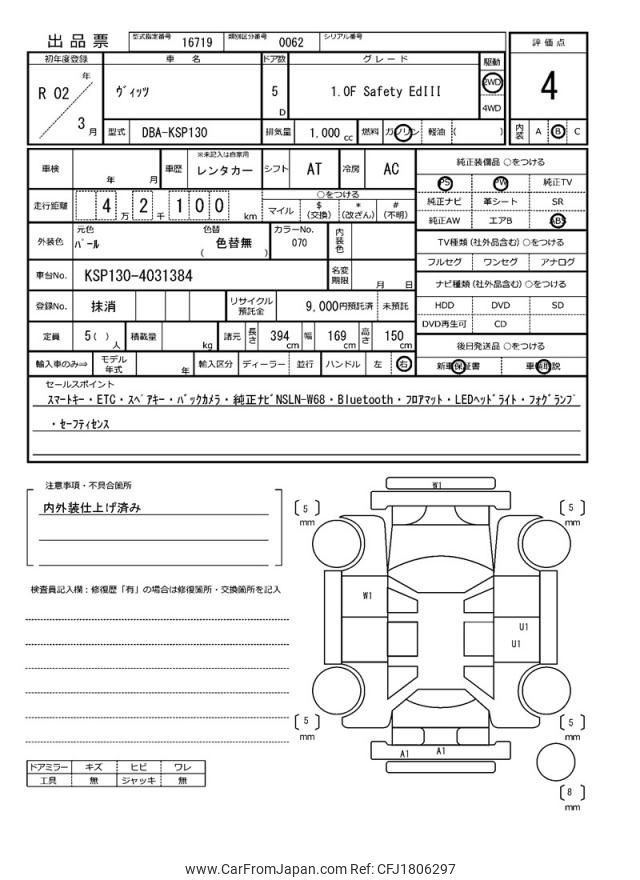 出品票
型式指定番号 16719 類別区分番号 0062 シリアル番号
評価点
初年度登録 車名 ドア数 グレード 駆動
R 02 年 3 月
ヴィッツ
5 D
1.0F Safety EdIII
2WD
4WD
4
型式 DBA-KSP130 排気量 1,000 cc 燃料 ガソリン 軽油 ( )
内装 A B C
車検 年 月 車歴 ※未記入は自家用 レンタカー シフト AT 冷房 AC
純正装備品 ○をつける
PS PW 純正TV
純正ナビ 革シート SR
純正AW エアB ABS
走行距離 4 万 2 千 1 0 0 km
○をつける
マイル $ (交換) * (改ざん) # (不明)
外装色 元色 パール 色替 色替無 ( ) カラーNo. 070 内装色
TV種類 (社外品含む) ○をつける
フルセグ ワンセグ アナログ
車台No. KSP130-4031384 名変期限 月 日
ナビ種類 (社外品含む) ○をつける
HDD DVD SD
DVD再生可 CD
登録No. 抹消 リサイクル預託金 9,000円預託済 未預託
定員 5 ( ) 人 積載量 kg 諸元 長さ 394 cm 幅 169 cm 高さ 150 cm
後日発送品 ○をつける
新車保証書 車輌取説
輸入車のみ⇒ モデル年式 年 輸入区分 ディーラー 並行 ハンドル 左 右
セールスポイント
スマートキー・ETC・スペアキー・バックカメラ・純正ナビNSLN-W68・Bluetooth・フロアマット・LEDヘッドライト・フォグランプ
・セーフティセンス
注意事項・不具合箇所
内外装仕上げ済み
検査員記入欄：修復歴「有」の場合は修復箇所・交換箇所を記入
W1
5 mm
5 mm
W1
U1
U1
5 mm
5 mm
A1 A1
8 mm
ドアミラー キズ ヒビ ワレ
工具 無 ジャッキ 無
www.CarFromJapan.com Ref: CFJ1806297